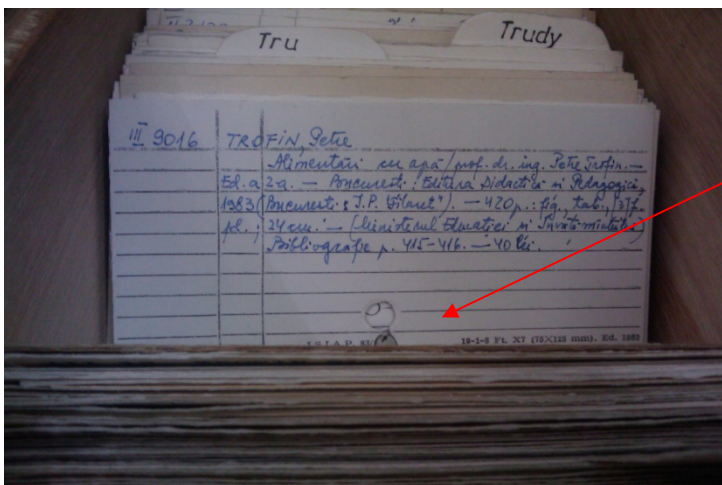 Tru
Trudy
III 9016 TROFIN, Petre
Alimentări cu apă / prof. dr. ing. Petre Trofin. —
Ed. a 2-a. — București : Editura Didactică și Pedagogică,
1983 (București : I.P. "Filaret"). — 420 p. : fig., tab., [3] f.
pl. ; 24 cm. — (Ministerul Educației și Învățămîntului)
Bibliografie p. 415-416. — 40 lei.
10-1-8 Ft. X7 (75×125 mm). Ed.